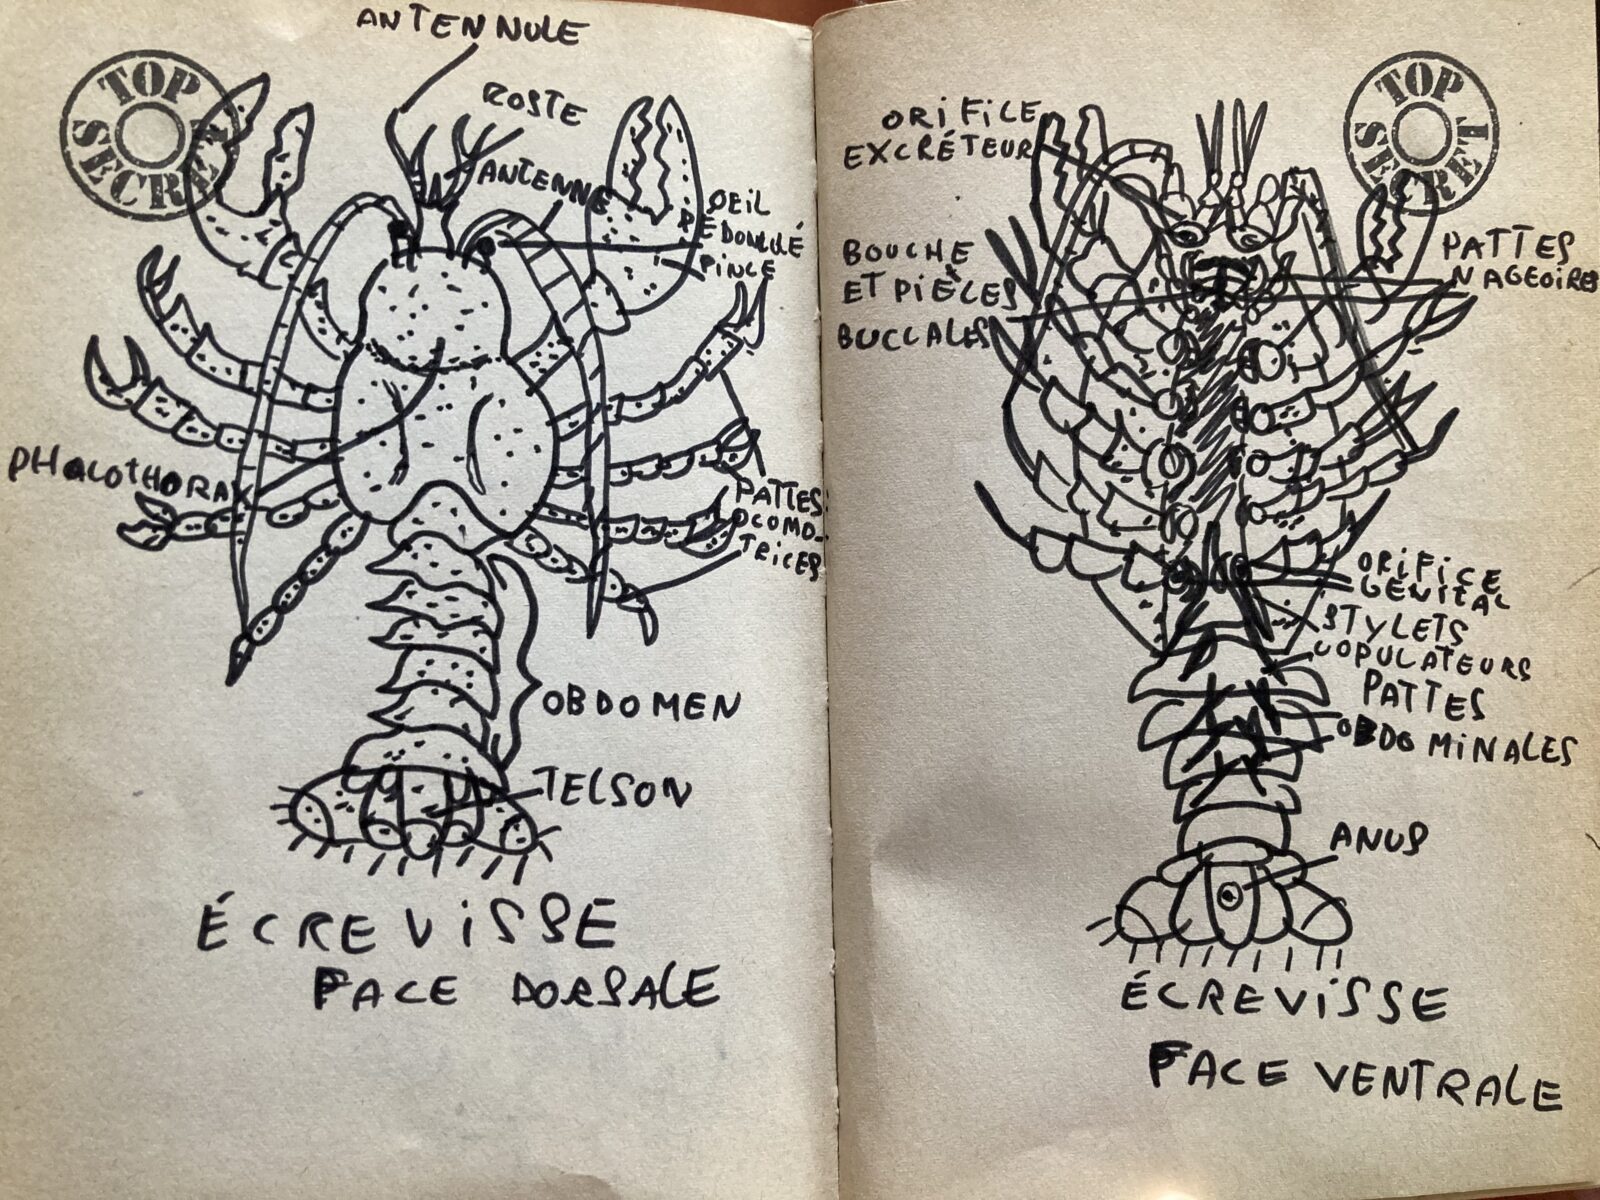 TOP
SECRET
ANTENNULE
ROSTE
ANTENNE
OEIL
PÉDONCULÉ
PINCE
PHALOTHORAX
PATTES
OCOMO-
TRICES
OBDOMEN
TELSON
ÉCREVISSE
FACE DORSALE
TOP
SECRET
ORIFILE
EXCRÉTEUR
BOUCHE
ET PIÈCES
BUCCALES
PATTES
NAGEOIRES
ORIFICE
GÉNITAL
STYLETS
COPULATEURS
PATTES
OBDOMINALES
ANUS
ÉCREVISSE
FACE VENTRALE